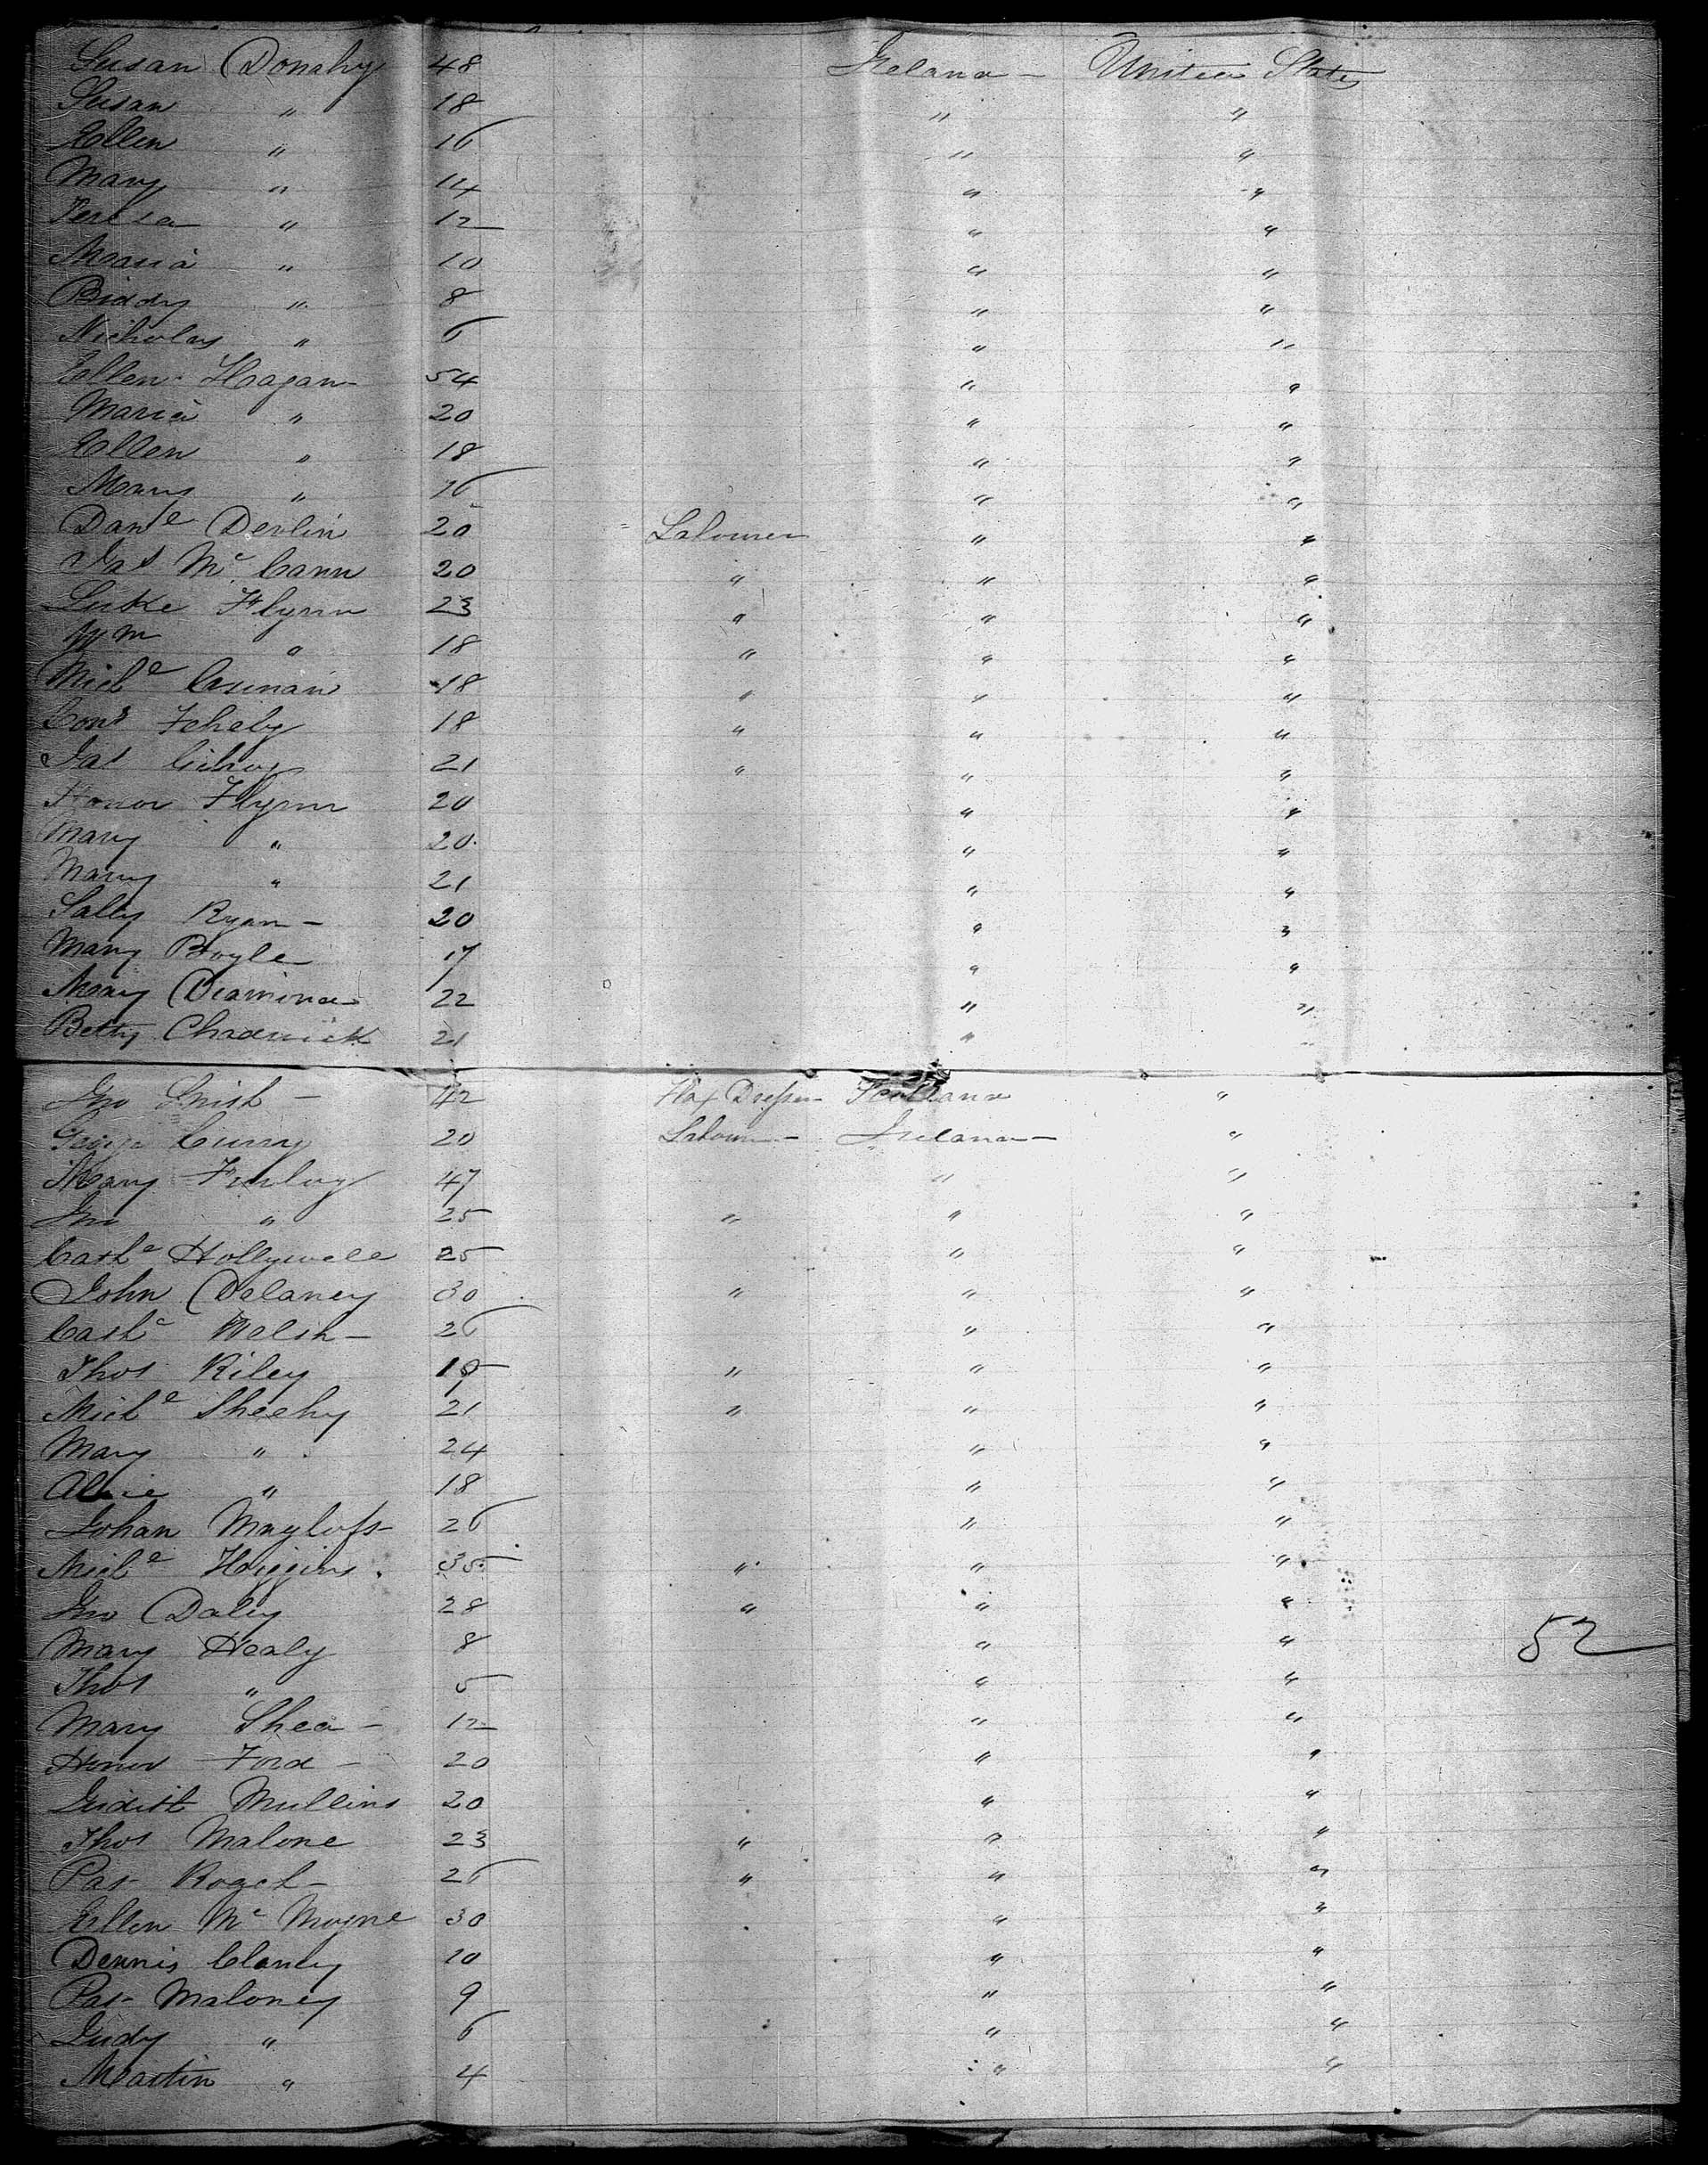 Susan Donahy 48 Ireland - United States
Susan " 18 " "
Ellen " 16 " "
Mary " 14 " "
Teresa " 12 " "
Maria " 10 " "
Biddy " 8 " "
Nicholas " 6 " "
Ellen Hagan 54 " "
Maria " 20 " "
Ellen " 18 " "
Mary " 16 " "
Danl Devlin 20 Labourer " "
Jas Mc Cann 20 " " "
Luke Flynn 23 " " "
Wm " 18 " " "
Michl 18 " " "
Cons 18 " " "
Jas 21 " " "
Honor Flynn 20 " "
Mary " 20 " "
Mary " 21 " "
Sally Ryan - 20 " "
Mary Boyle 17 " "
Mary Diamond 22 " "
Betty Chadwick 21 " "
Jno - 42 Flax Dresser Scotland "
George Curry 20 Labourer - Ireland - "
Mary Finlay 47 " "
Jno " 25 " " "
Cathe Hollywell 25 " "
John Delaney 30 " " "
Cathe Walsh - 26 " "
Thos Riley 19 " " "
Michl Sheehy 21 " " "
Mary " 24 " "
Alice " 18 " "
Johan 26 " "
Michl Higgins 35 " " "
Jno Daley 28 " " "
Mary Healy 8 " "
52
Thos " 5 " "
Mary Shea - 12 " "
Honor Ford - 20 " "
Judith Mullins 20 " "
Thos Malone 23 " " "
Pat 26 " " "
Ellen Mc 30 " "
Dennis Clancy 10 " "
Pat Maloney 9 " "
Judy " 6 " "
Martin " 4 " "